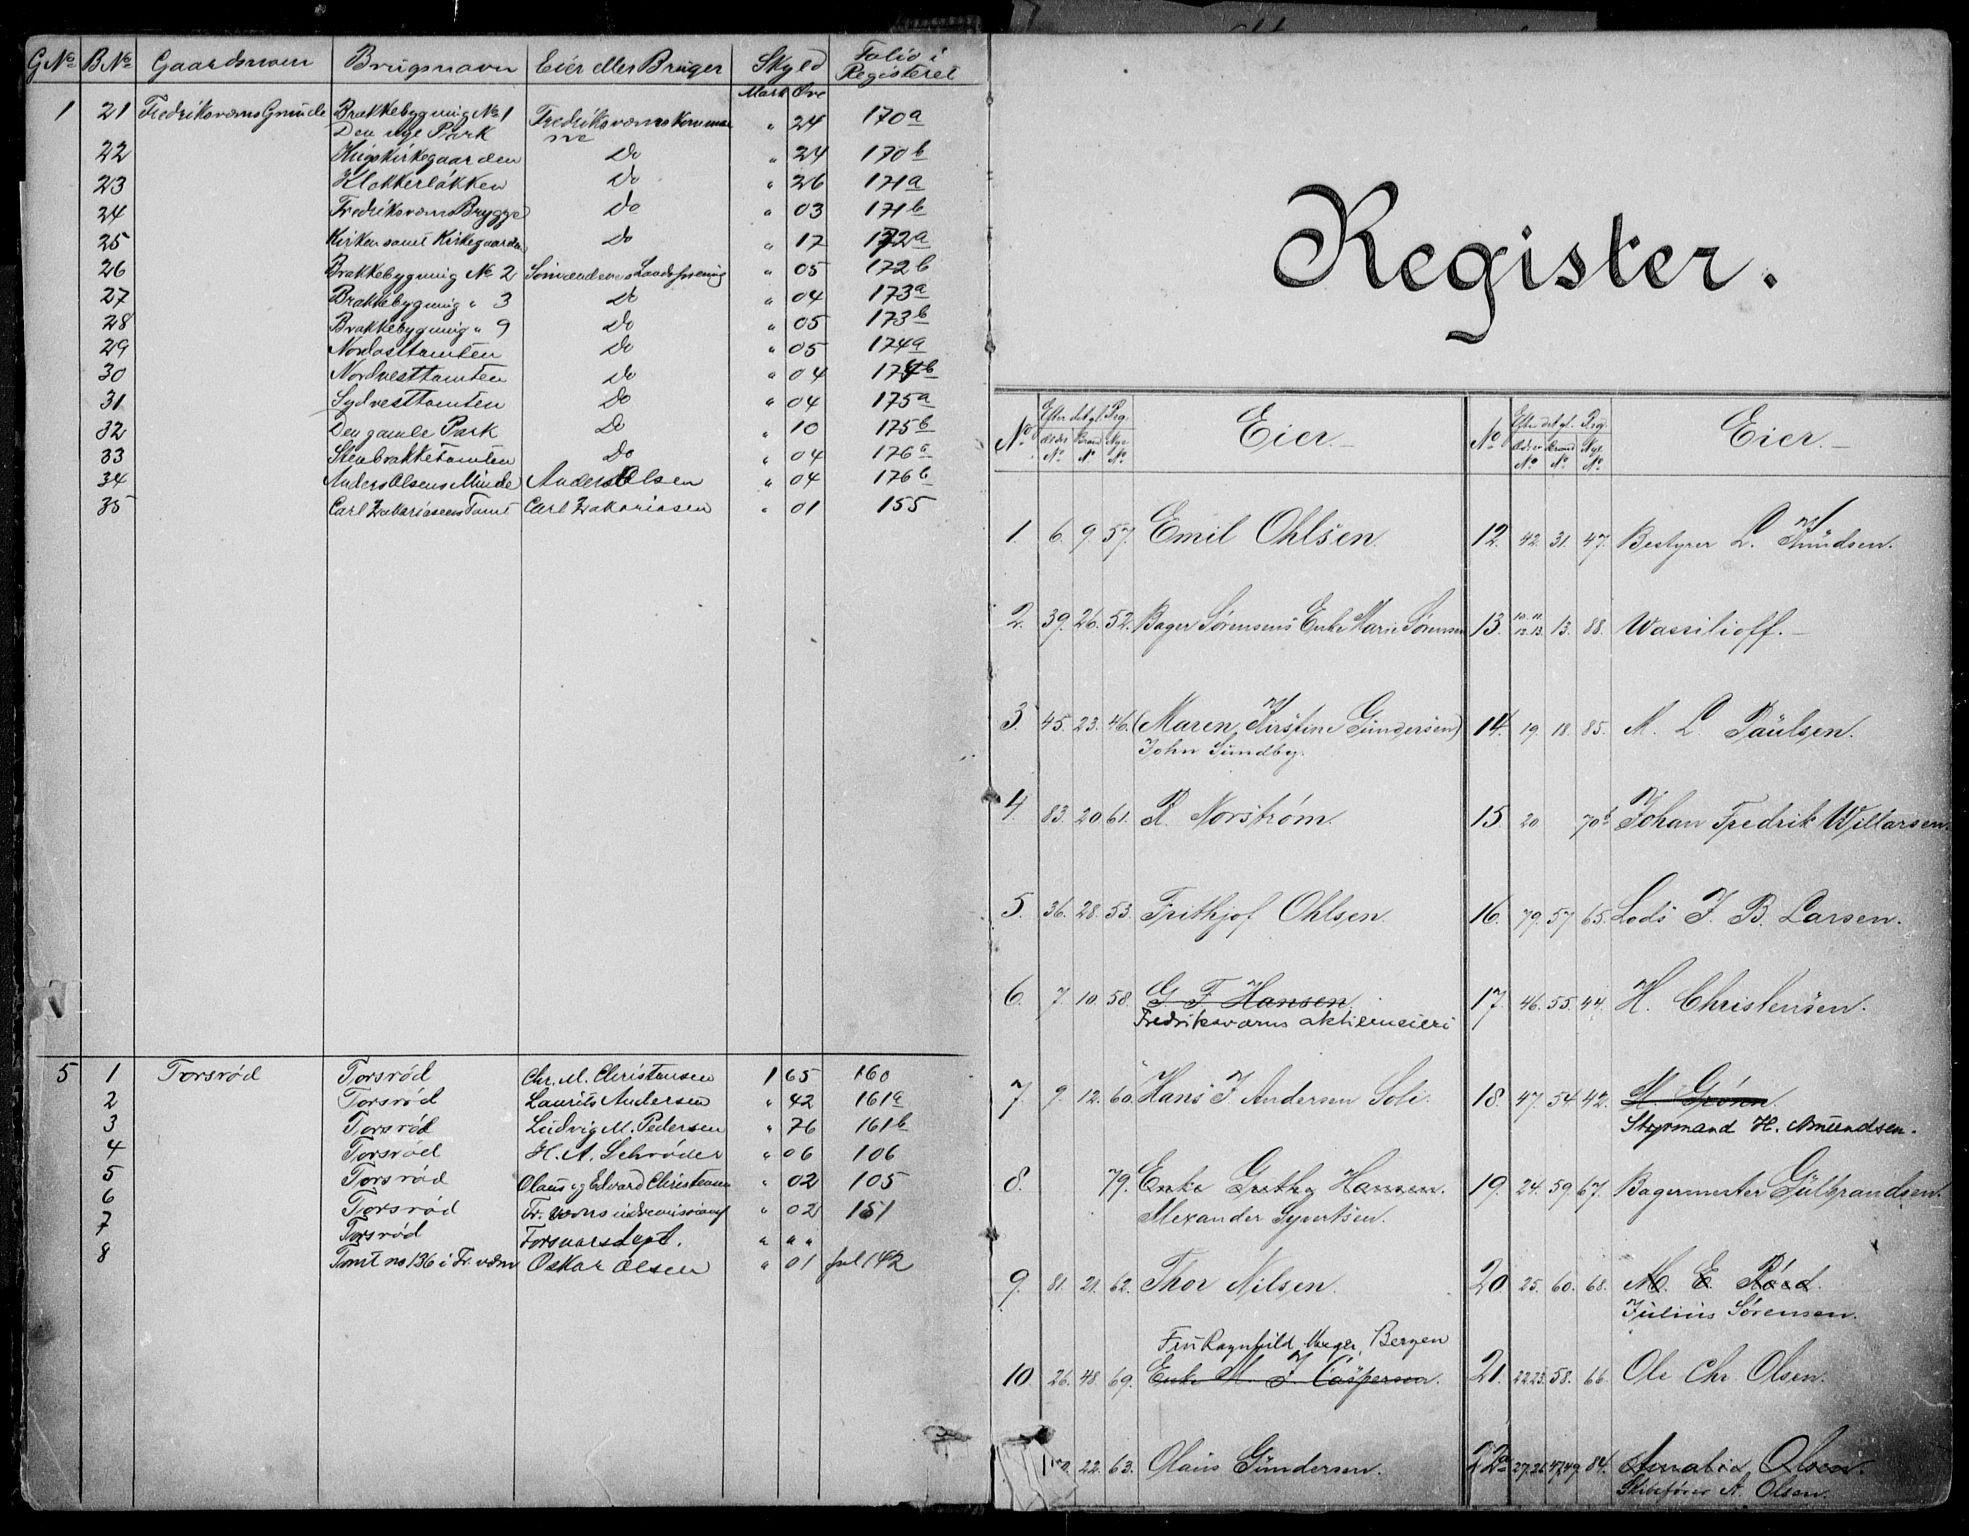 G.No B.No Gaardsnavn Brugsnavn Eier eller Bruger Skyld Folio i Registeret
Mark Øre
1 21 Fredriksværns Grunde Brakkebygning No 1 Fredriksværns Kommune " 24 170a
Den nye Park
22 Krigskirkegaarden Do " 24 170b
23 Klokkerløkken Do " 26 171a
24 Fredriksværns Brygge Do " 03 171b
25 Kirken samt Kirkegaarden Do " 17 172a
26 Brakkebygning No 2 " 05 172b
27 Brakkebygning " 3 Do " 04 173a
28 Brakkebygning " 9 Do " 05 173b
29 Nordosttomten Do " 05 174a
30 Nordvesttomten Do " 04 174b
31 Sydvesttomten Do " 04 175a
32 Den gamle Park Do " 10 175b
33 Stenbrakketomten Do " 04 176a
34 Anders Olsens Minde Anders Olsen " 04 176b
35 Carl Zakariasens Tomt Carl Zakariasen " 01 155
5 1 Torsrød Torsrød Chr. M. Christensen 1 65 160
2 Torsrød Laurits Andersen " 42 161a
3 Torsrød Ludvig M. Pedersen " 76 161b
4 Torsrød H. A. Schrøder " 06 106
5 Torsrød Olaus og Edvard Christensen " 02 105
6 Torsrød Fr. værns indremisionsf " 02 151
7 Torsrød Forsvarsdept. " " "
8 Tomt no 136 i Fr. værn Oskar Olsen " 01 fol 142
Register.
No Efter det gl. Reg. Eier
Ældre No Brand No Nye No
1. 6. 9. 57. Emil Ohlsen.
2. 39. 26. 52. Bager Sørensens Enke Marie Sørensen
3. 45. 23. 46. (Maren Kirstine Gundersen)
John Sundby.
4. 83. 20. 61. R. Norstrøm.
5. 36. 28. 53. Frithjof Ohlsen.
6. 7. 10. 58. G. F. Hansen.
Fredriksværns aktiemeieri
7. 9. 12. 60. Hans J. Andersen Soli.
8. 79. Enke Grethe Hansen.
Alexander Syvertsen.
9. 81. 21. 62. Thor Nilsen.
Fru Ragnhild Unger, Bergen
10. 26. 48. 69. Enke M. J. Caspersen.
22. 63. Olaus Gundersen.
No Efter det gl. Reg. Eier
Ældre No Brand No Nye No
12. 42. 31. 47. Bestyrer L. Knudsen.
13. 10. 11. 12. 13. 13. 88. Wassilioff.
14. 19. 18. 85. M. L. Paulsen.
15. 20. 70b Johan Fredrik Willarsen.
16. 79. 57 65. Lods J. B. Larsen.
17. 46. 55. 44. H. Christensen.
18. 47. 54 42. M. Grønn
Styrmand H. Amundsen.
19. 24. 59. 67. Bagermester Gulbrandsen.
20 25. 60. 68. M. E. Röed.
Julius Sørensen.
21. 22.23. 58. 66 Ole Chr. Olsen.
22a 27.26. 47.49. 84. Amalia Olsen.
A. Olsen.